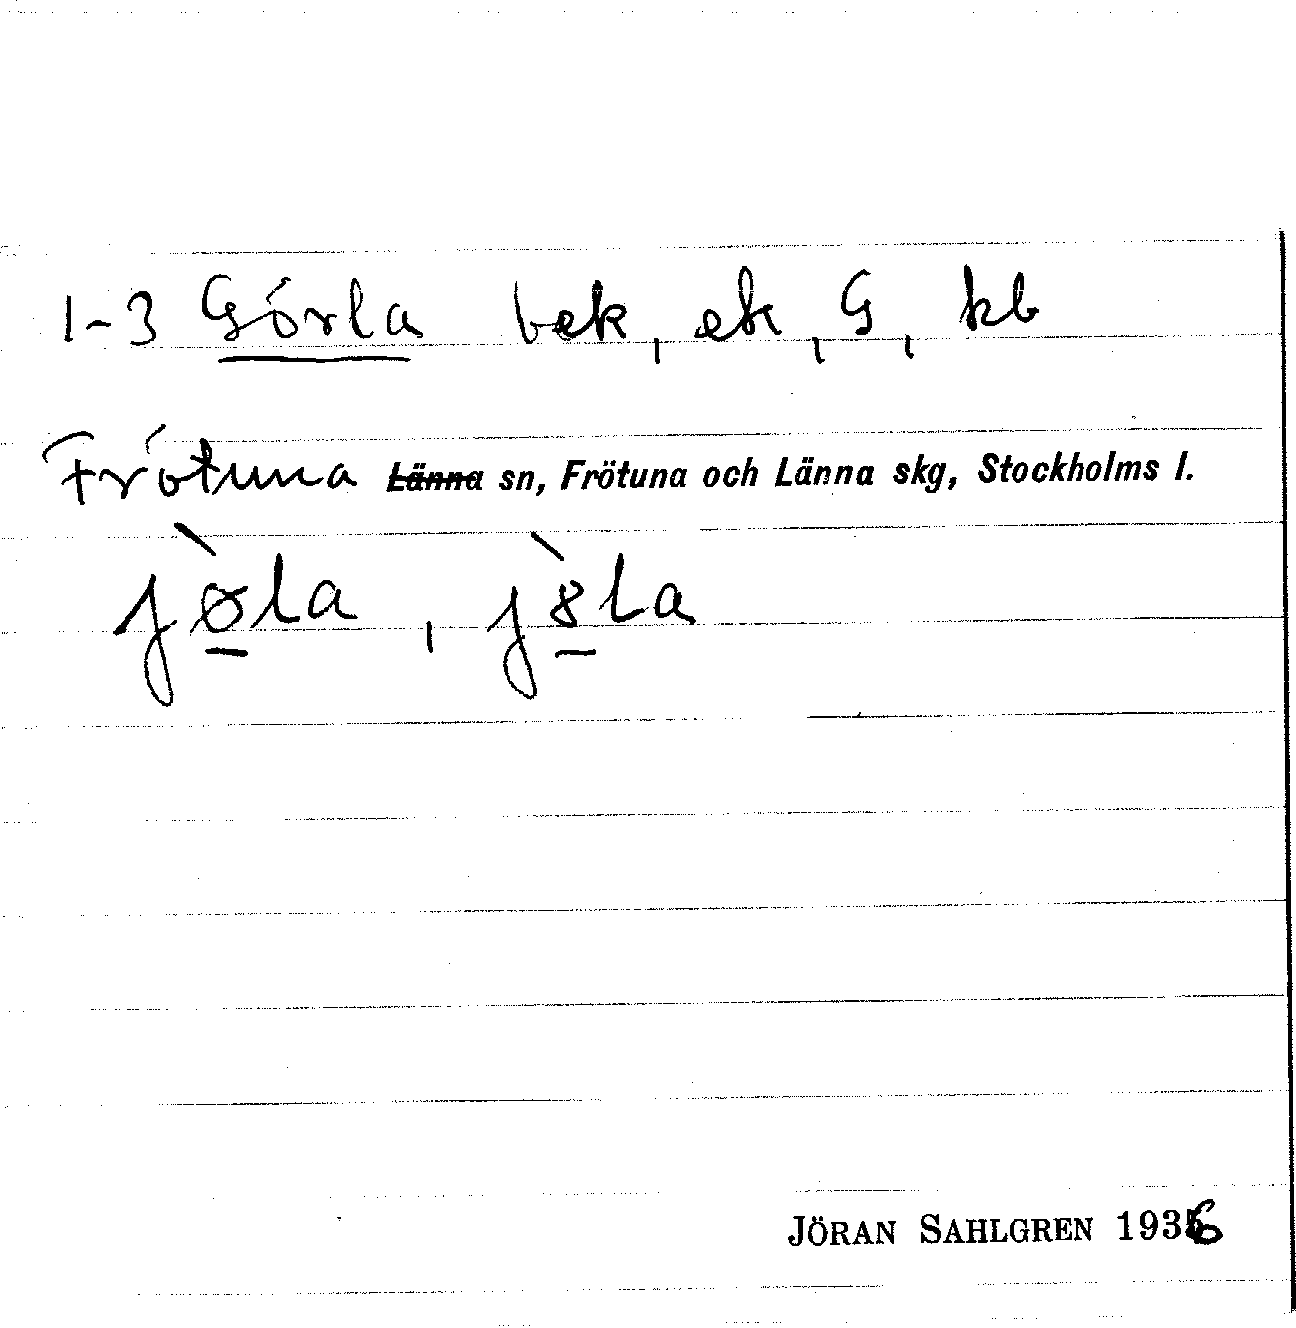 1-3 Görla bek, ek, G, kb
Frötuna Länna sn, Frötuna och Länna skg, Stockholms l.
jø̱̀la, jȣ̱̀la
JÖRAN SAHLGREN 1936